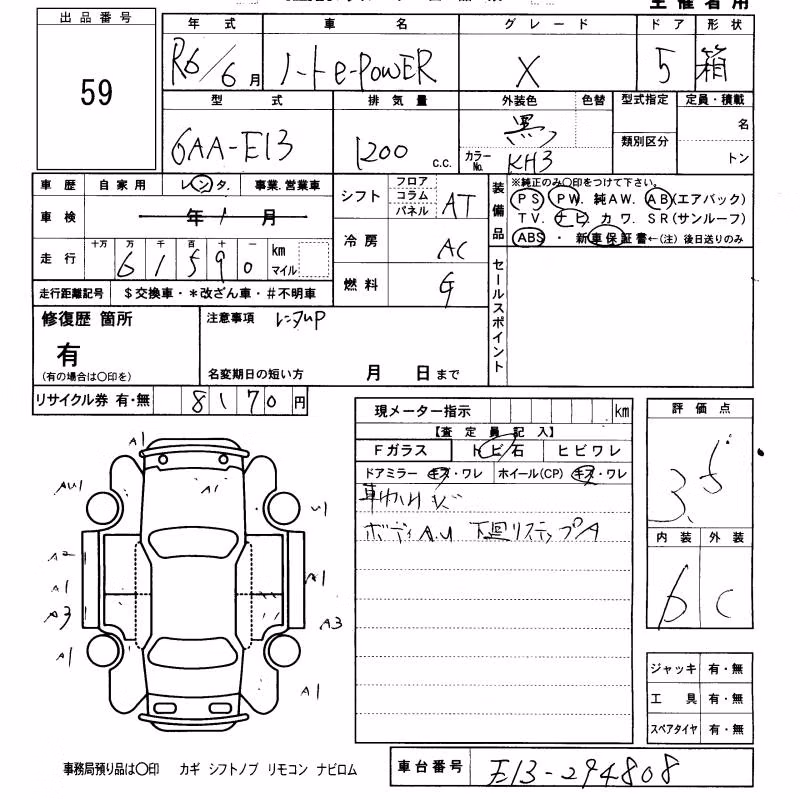 出品番号
59
年式 車名 グレード ドア 形状
R6/6月 ノートe-POWER X 5 箱
型式 排気量 外装色 色替 型式指定 定員・積載
6AA-E13 1200 c.c. 黒 カラーNo. KH3 類別区分 名 トン
車歴 自家用 レンタ. 事業.営業車
車検 年 月
走行 十万 万 千 百 十 一 km マイル
6 1 5 9 0
走行距離記号 $交換車・*改ざん車・#不明車
シフト フロア コラム パネル AT
冷房 AC
燃料 G
装備品
※純正のみ○印をつけて下さい。
PS PW. 純AW. AB(エアバック)
TV. ナビ カワ. SR(サンルーフ)
ABS ・ 新車保証書←(注) 後日送りのみ
セールスポイント
修復歴 箇所
有
(有の場合は○印を)
注意事項 レンタUP
名変期日の短い方 月 日まで
リサイクル券 有・無 8170円
現メーター指示 km
【査定員記入】
Fガラス トビ石 ヒビワレ
ドアミラー キズ・ワレ ホイール(CP) キズ・ワレ
ボディA.U 下廻リステップA
評価点
3.5
内装 外装
6 C
A1
AU1 A1 U1
A2
A1 A1
A3 A3
A1
A1
ジャッキ 有・無
工具 有・無
スペアタイヤ 有・無
事務局預り品は○印 カギ シフトノブ リモコン ナビロム
車台番号 E13-294808